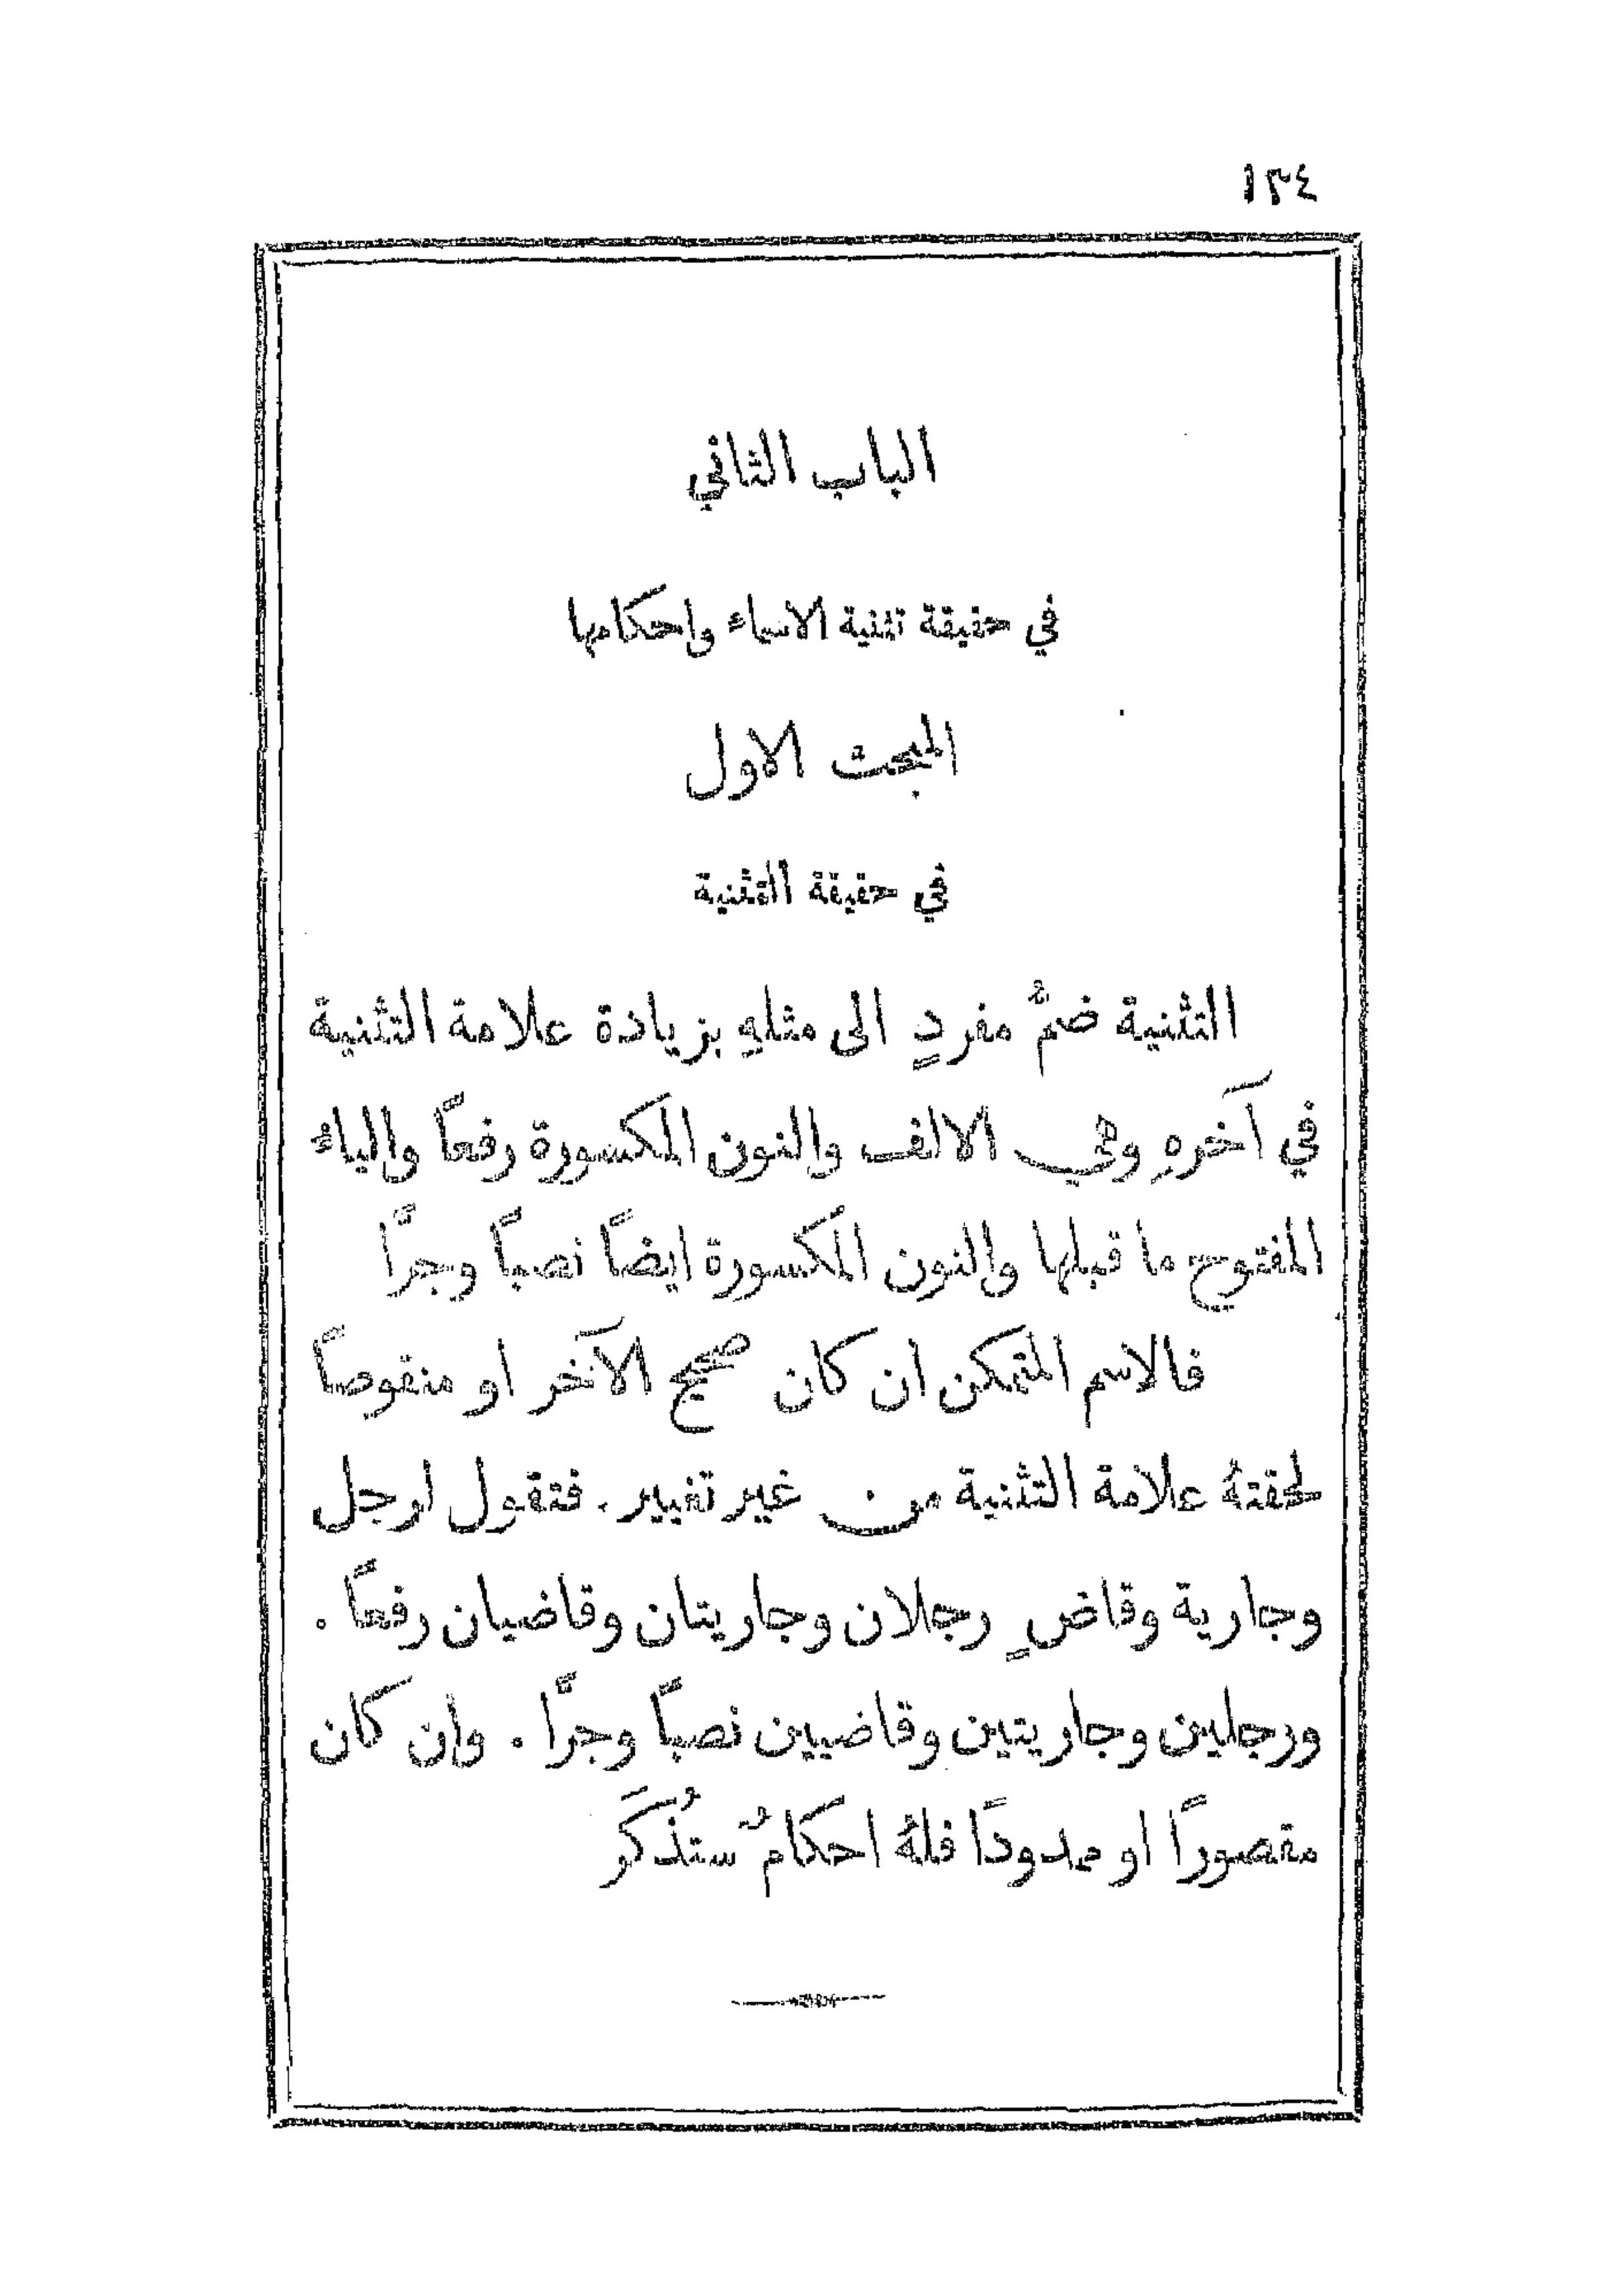 ١٣٤
الباب الثاني
في حقيقة تثنية الاسماء واحكامها
المبحث الاول
في حقيقة التثنية
التثنية ضمُّ مفردٍ الى مثلهِ بزيادة علامة التثنية
في آخرهِ وهي الالف والنون المكسورة رفعاً والياءُ
المفتوح ما قبلها والنون المكسورة ايضاً نصباً وجرًّا
فالاسم المتمكن ان كان صحيح الآخر او منقوصاً
لحقتهُ علامة التثنية من غير تغيير. فتقول لرجل
وجارية وقاضٍ رجلان وجاريتان وقاضيان رفعاً.
ورجلين وجاريتين وقاضيين نصباً وجرًّا. وان كان
مقصورًا او ممدودًا فلهُ احكامٌ ستُذكَر